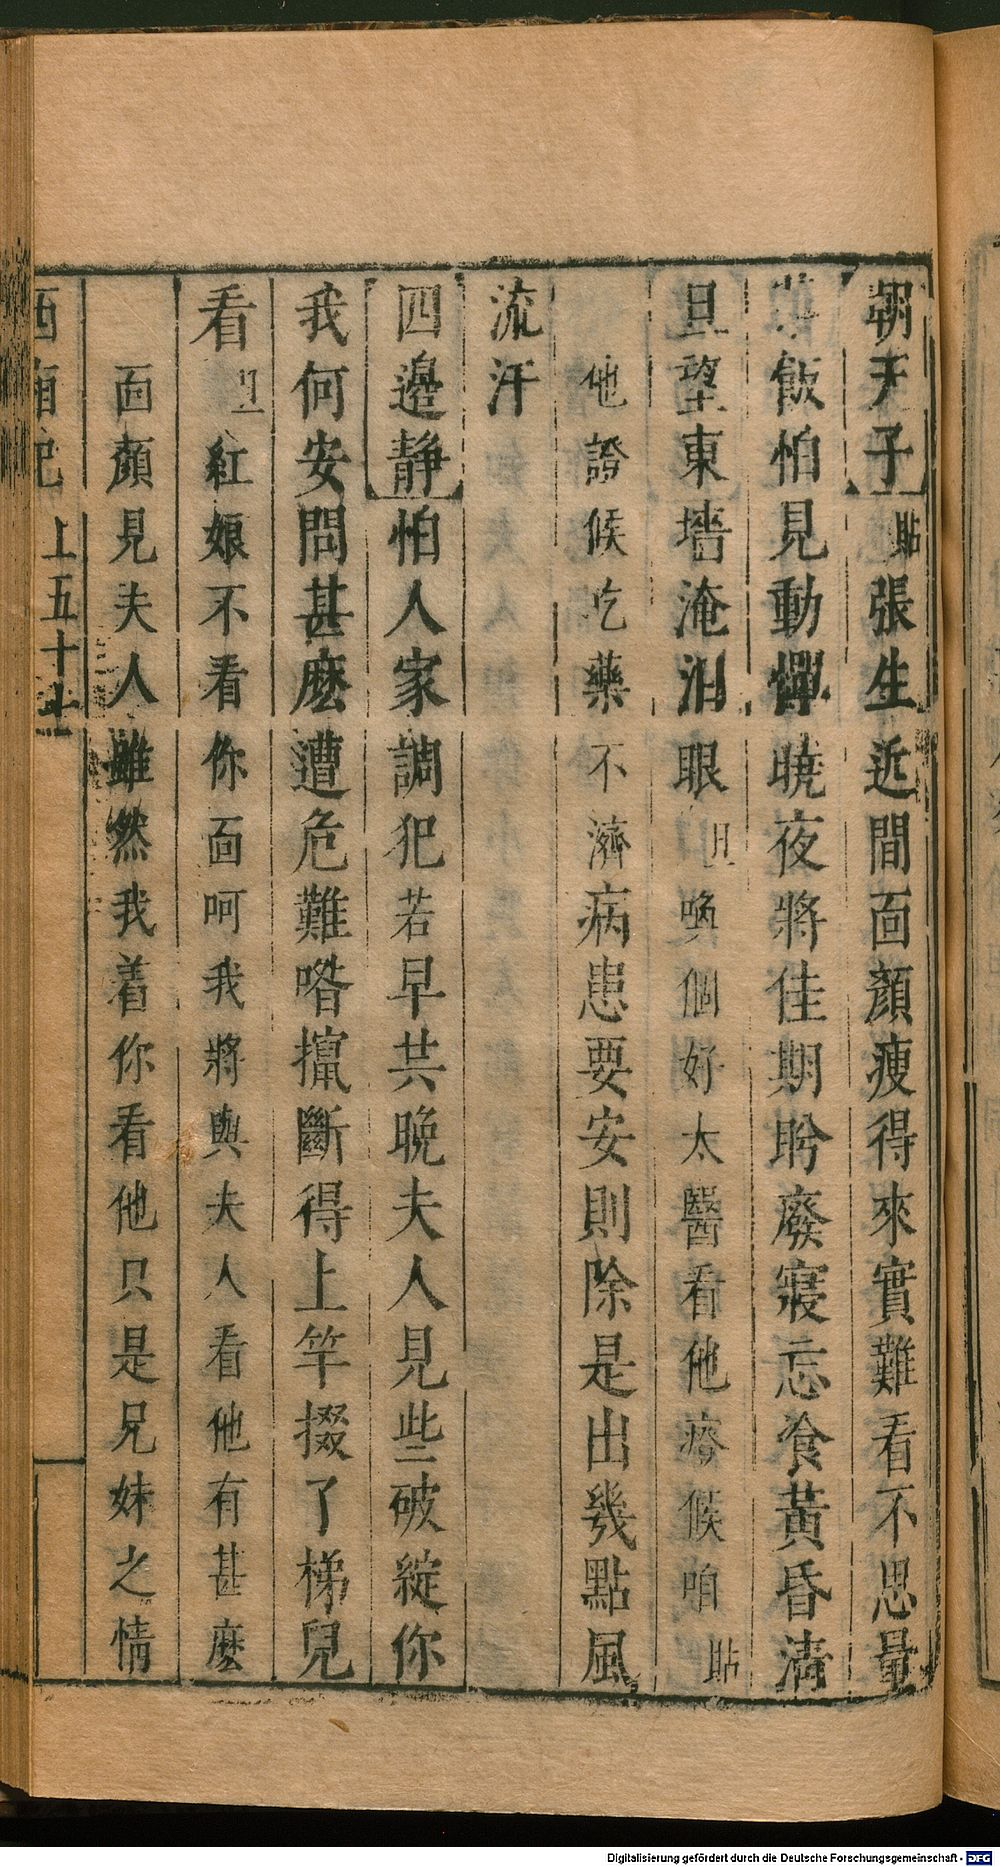 朝天子 貼 張生近間面顏瘦得來實難看不思量
茶飯怕見動憚曉夜將佳期盼廢寢忘食黃昏清
旦望東墻淹泪眼 旦 喚個好太醫看他證候咱 貼
他證候吃藥不濟病患要安則除是出幾點風
流汗
四邊静 怕人家調犯若早共晚夫人見些破綻你
我何安問甚麽遭危難喒攛斷得上竿掇了梯兒
看 旦 紅娘不看你面呵我將與夫人看他有甚麽
面顏見夫人雖然我着你看他只是兄妹之情
西廂記 上五十七
Digitalisierung gefördert durch die Deutsche Forschungsgemeinschaft - DFG